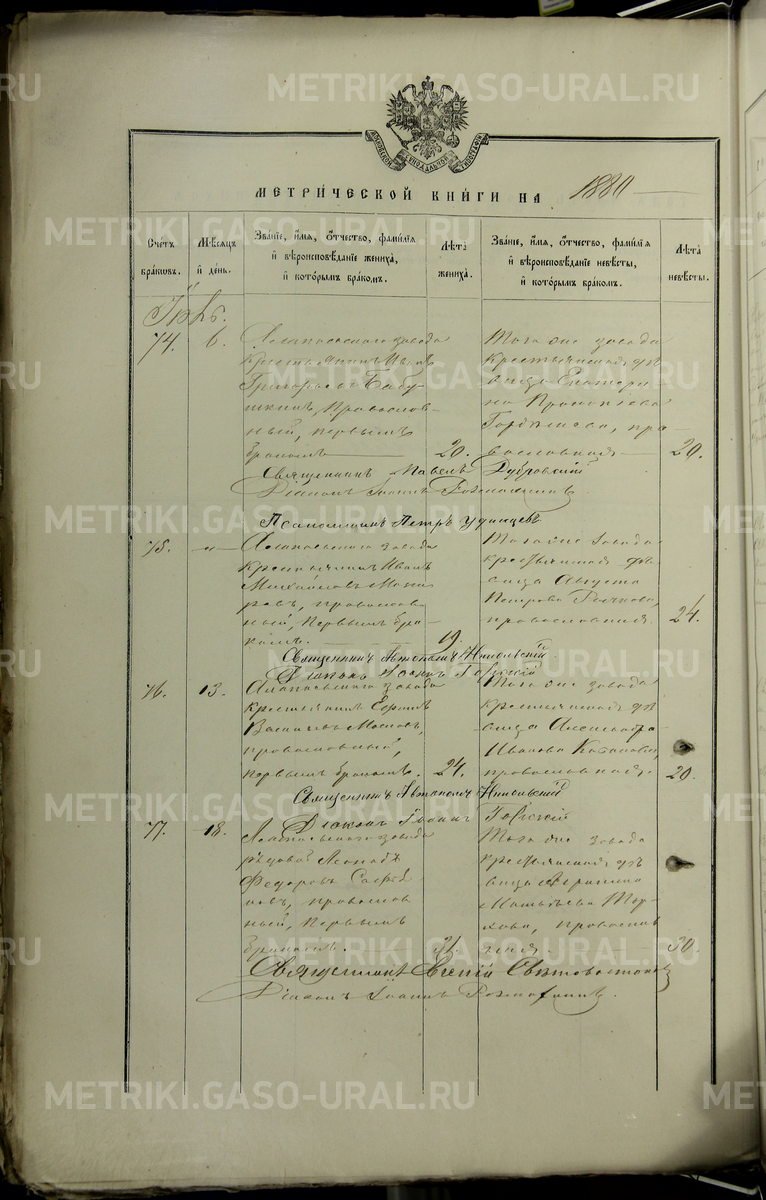 МЕТРИ́ЧЕСКОЙ КНИ́ГИ НА 1880
Сче́тъ бра́ковъ.
Мѣ́сяцъ и҆ де́нь.
Зва́нїе, и҆́мя, ѻ҆́тчество, фами́лїя и҆ вѣроисповѣ́данїе жениха̀, и҆ кото́рымъ бра́комъ.
Лѣ́та жениха̀.
Зва́нїе, и҆́мя, ѻ҆́тчество, фами́лїя и҆ вѣроисповѣ́данїе невѣ́сты, и҆ кото́рымъ бра́комъ.
Лѣ́та невѣ́сты.
74.
6.
Алапаевскаго завода
крестьянинъ Иванъ
Григорьевъ Бабу-
шкинъ, православ-
ный, первымъ
бракомъ
20.
Того же завода
крестьянская дѣ-
вица Екатери-
на Прокопьева
православная
20.
Священникъ Павелъ Дубровскій
Діаконъ Іоаннъ
Псаломщикъ Петръ Удинцевъ
75.
Алапаевскаго завода
крестьянинъ Иванъ
Михайловъ Мака-
ровъ, православ-
ный, первымъ бра-
комъ.
19.
Того же завода
крестьянская дѣ-
вица Августа
Петрова
православная.
24.
Священникъ Автономъ Никольскій
Діаконъ Іоаннъ
76.
13.
Алапаевскаго завода
крестьянинъ Ефимъ
Васильевъ
православный,
первымъ бракомъ.
24.
Того же завода
крестьянская дѣ-
вица Александра
Иванова
православная.
20.
Священникъ Автономъ Никольскій
Діаконъ Іоаннъ
77.
18.
Алапаевскаго завода
рядовой
Федоровъ
православ-
ный, первымъ
бракомъ.
31.
Того же завода
крестьянская дѣ-
вица
православ-
ная.
30.
Священникъ Евгеній
Діаконъ Іоаннъ
METRIKI.GASO-URAL.RU